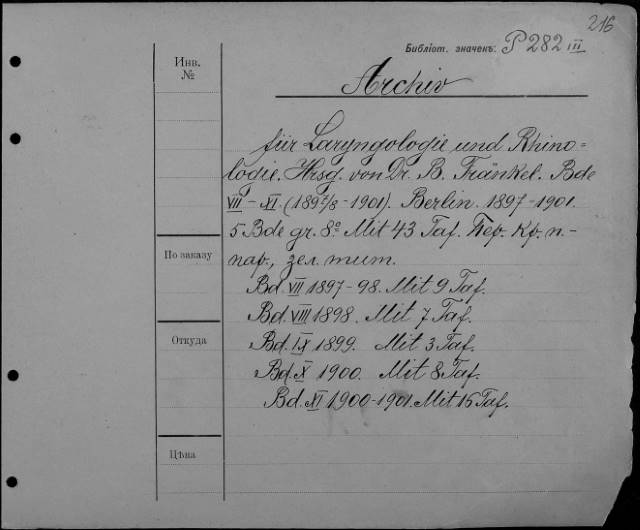 216
Библіот. значекъ: P 282 III
Инв.
№
Archiv
für Laryngologie und Rhino-
logie. Hrsg. von Dr. B. Fränkel. Bde
VII - XI. (1897/8-1901). Berlin. 1897-1901.
5 Bde gr. 8°. Mit 43 Taf. Пер. кр. п.-
пар., зел. тит.
По заказу
Bd. VII 1897-98. Mit 9 Taf.
Bd. VIII 1898. Mit 7 Taf.
Откуда
Bd. IX 1899. Mit 3 Taf.
Bd. X 1900. Mit 8 Taf.
Bd. XI 1900-1901. Mit 16 Taf.
Цѣна